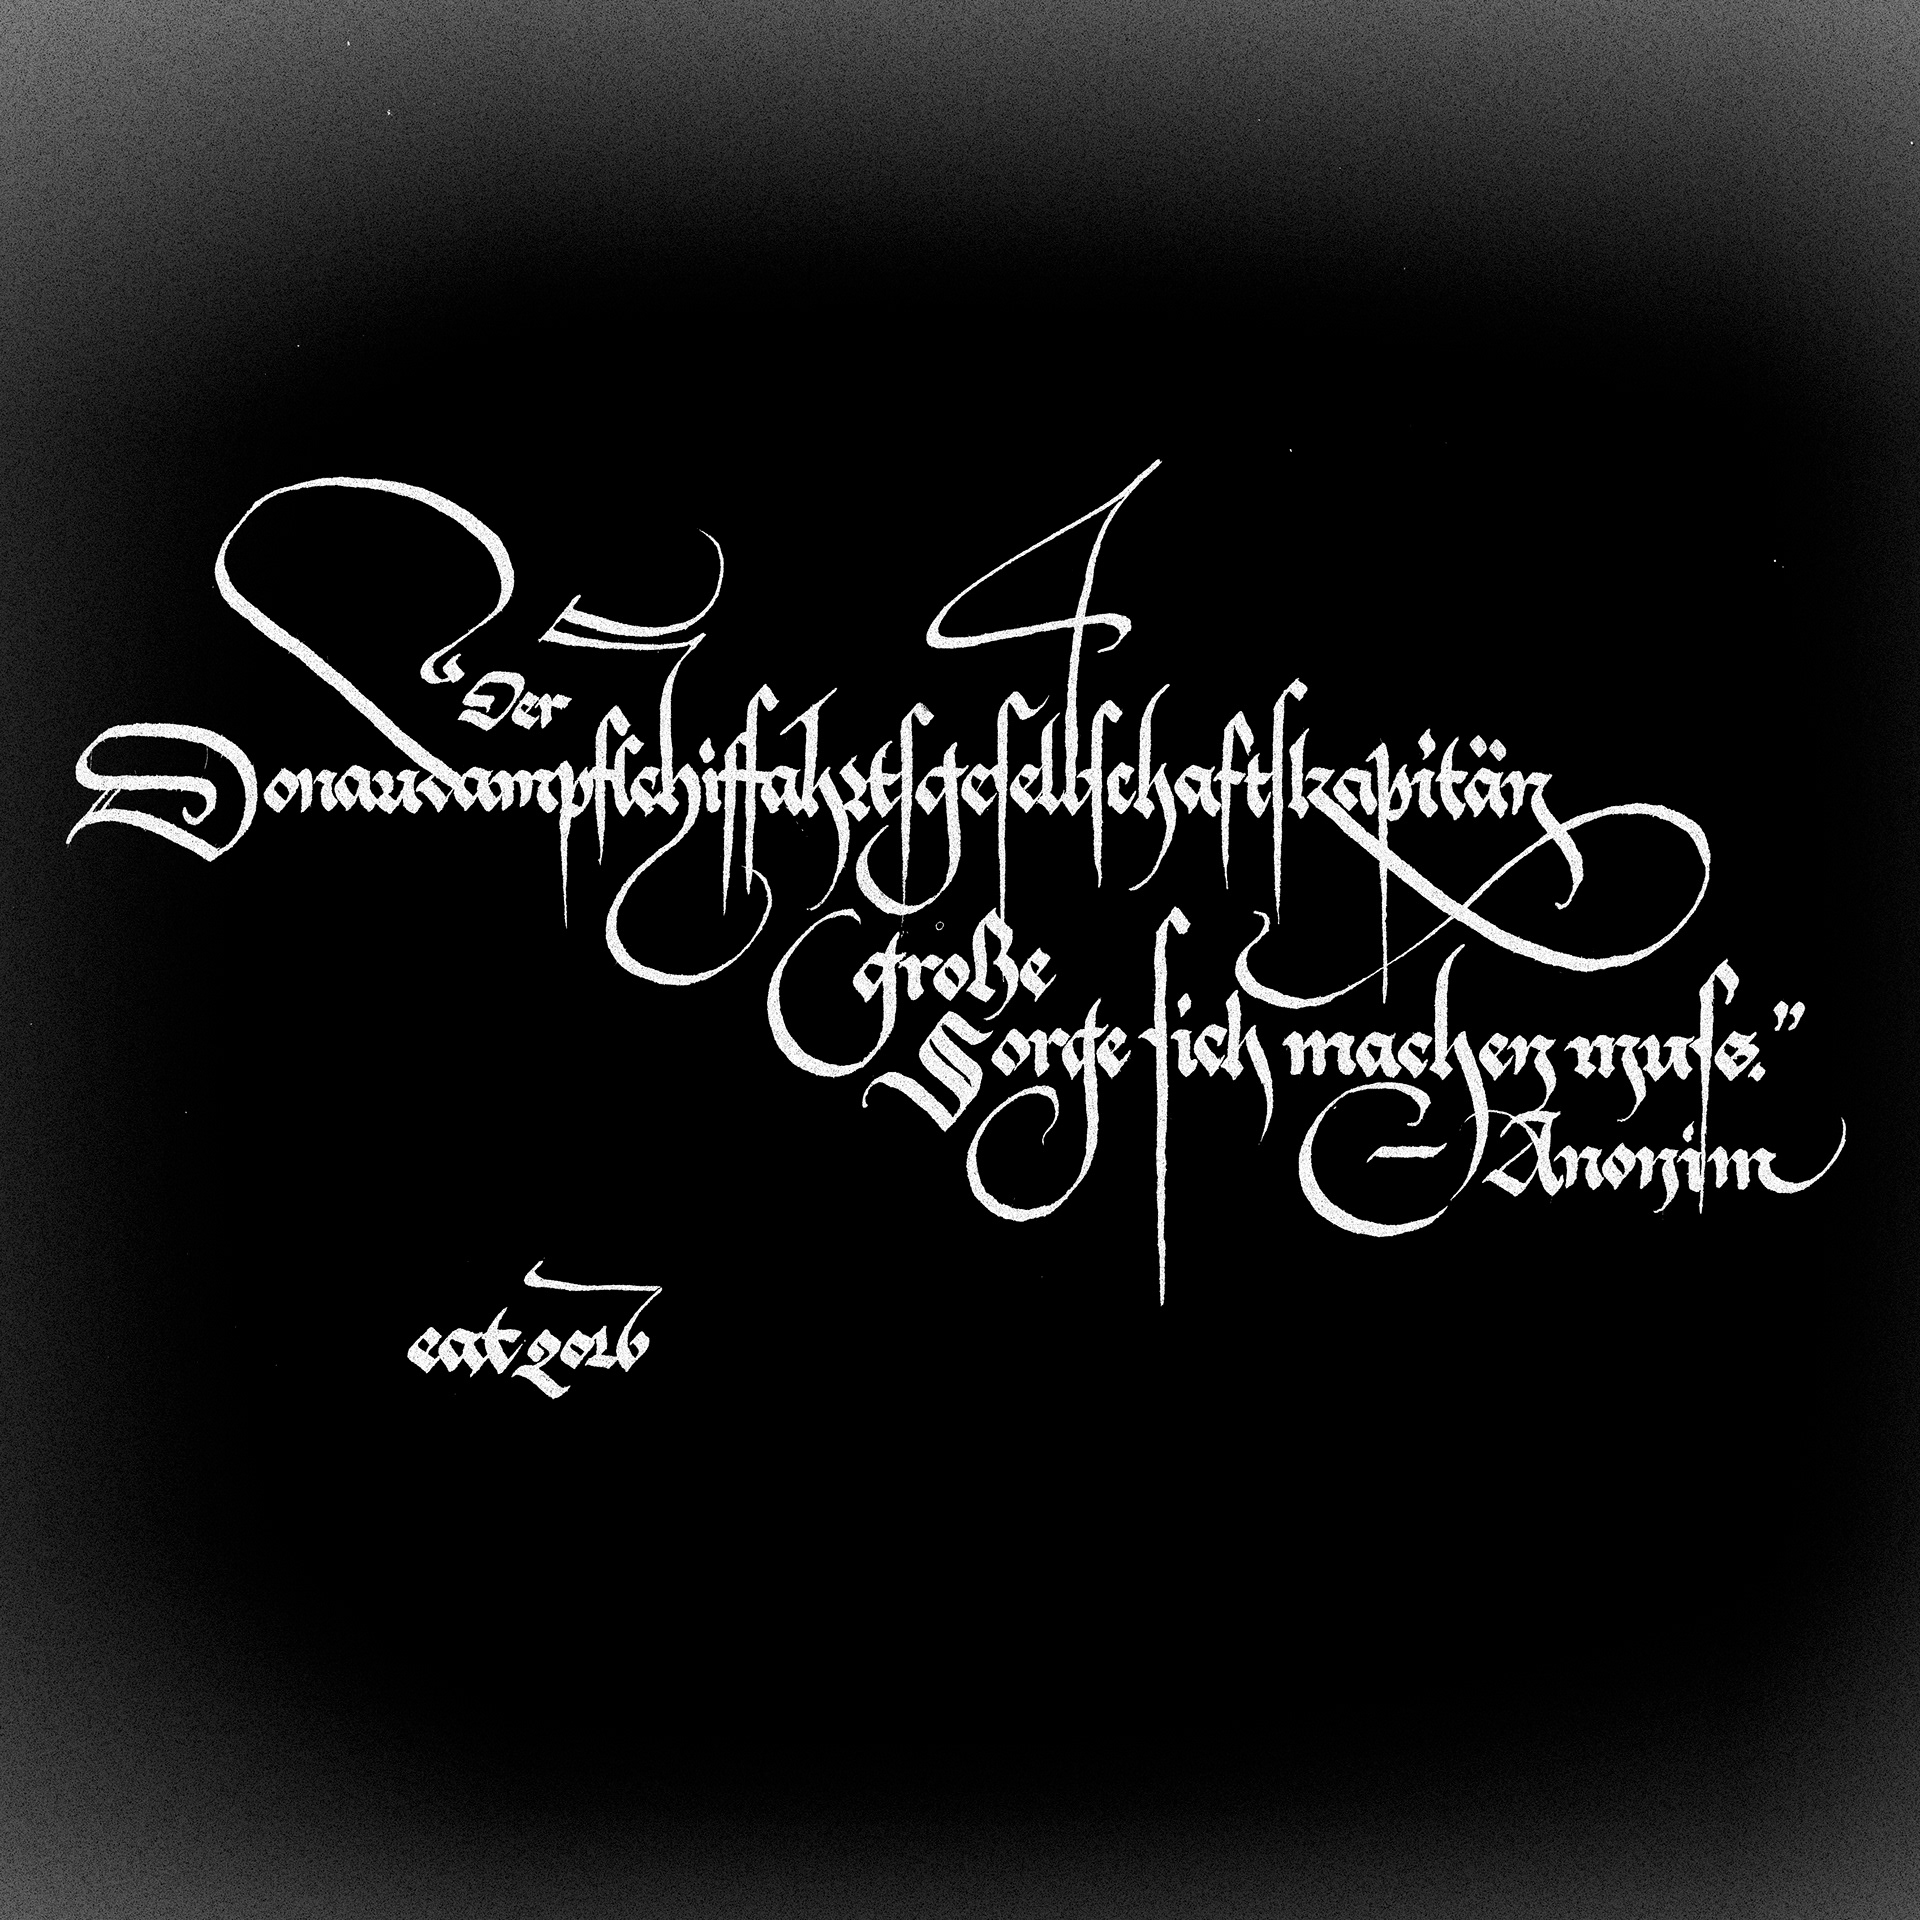 “Der
Donaudampfſchiffahrtſgeſellſchaftſkapitän
große
Sorge ſich machen muſs.”
— Anonim
eat 2016